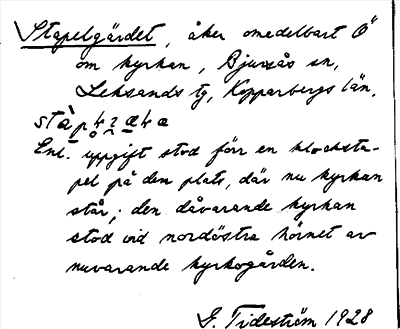 Stapelgärdet, åker omedelbart Ö
om kyrkan, Bjursås sn,
Leksands tg, Kopparbergs län.
Enl. uppgift stod förr en klocksta-
pel på den plats, där nu kyrkan
står; den dåvarande kyrkan
stod vid nordöstra hörnet av
nuvarande kyrkogården.
G. Tideström 1928